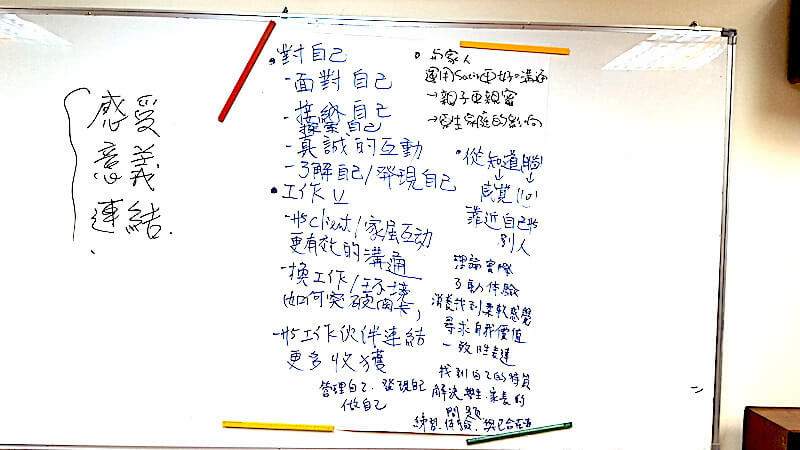 感受
意義
連結.
• 對自己
- 面對自己
- 接納自己
探索自己
- 真誠的互動
- 了解自己/發現自己
• 工作上
- 與client/家屬互动
更有效的溝通
- 換工作/環境
如何突破困境,
- 與工作伙伴連結
更多收獲
管理自己、發現自己
做自己
• 与家人
運用Satir更好的溝通
→親子更親密
→原生家庭的影响
• 從知道(腦)
感覺(心)
靠近自己與
別人
理論實際
互動体驗
找到柔軟感覺
尋求自我價值
一致性表達
找到自己的特質
解決學生、家長的
問題
練習、体驗、